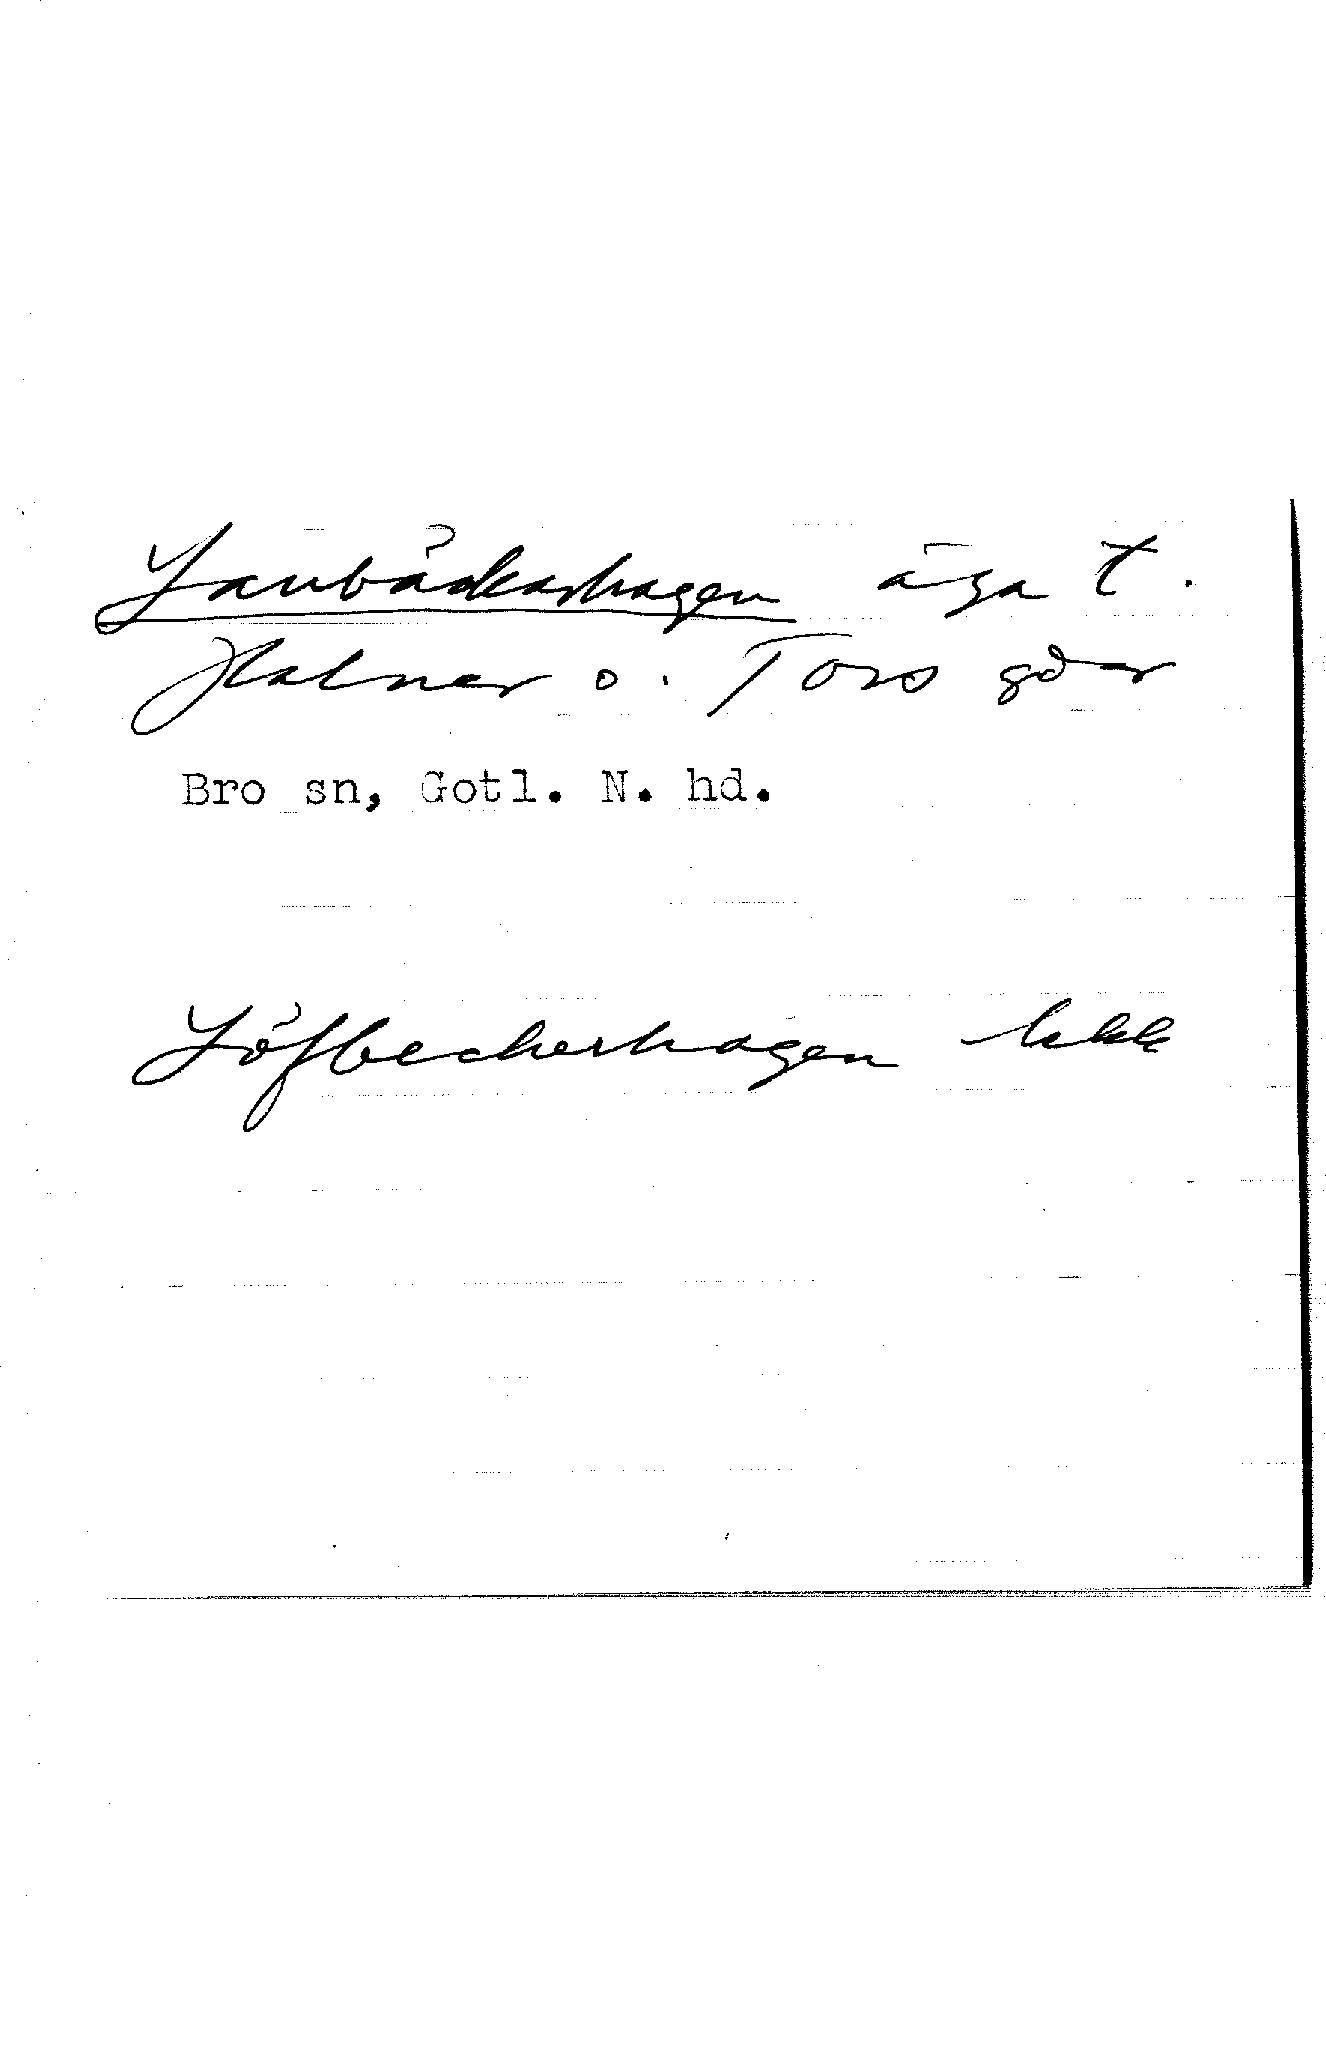 Laubäckashagen äga t.
Halner o. Tors gdar
Bro sn, Gotl. N. hd.
Löfbecherhagen